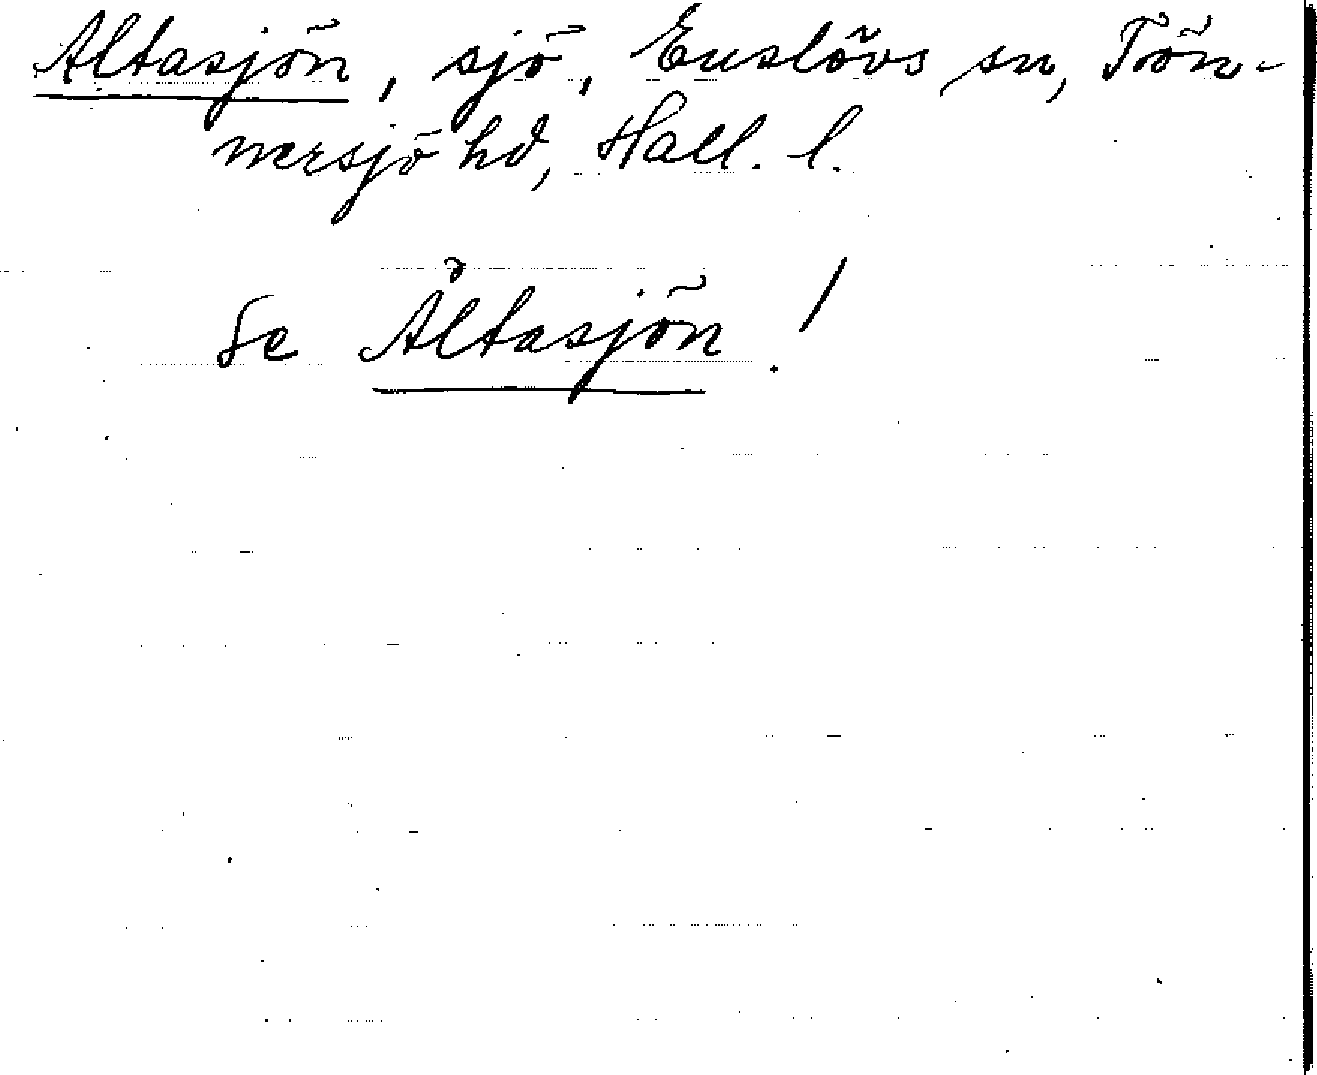 Altasjön, sjö, Euslövs sn, Tön-
nersjö hd, Hall. l.
Se Åltasjön!